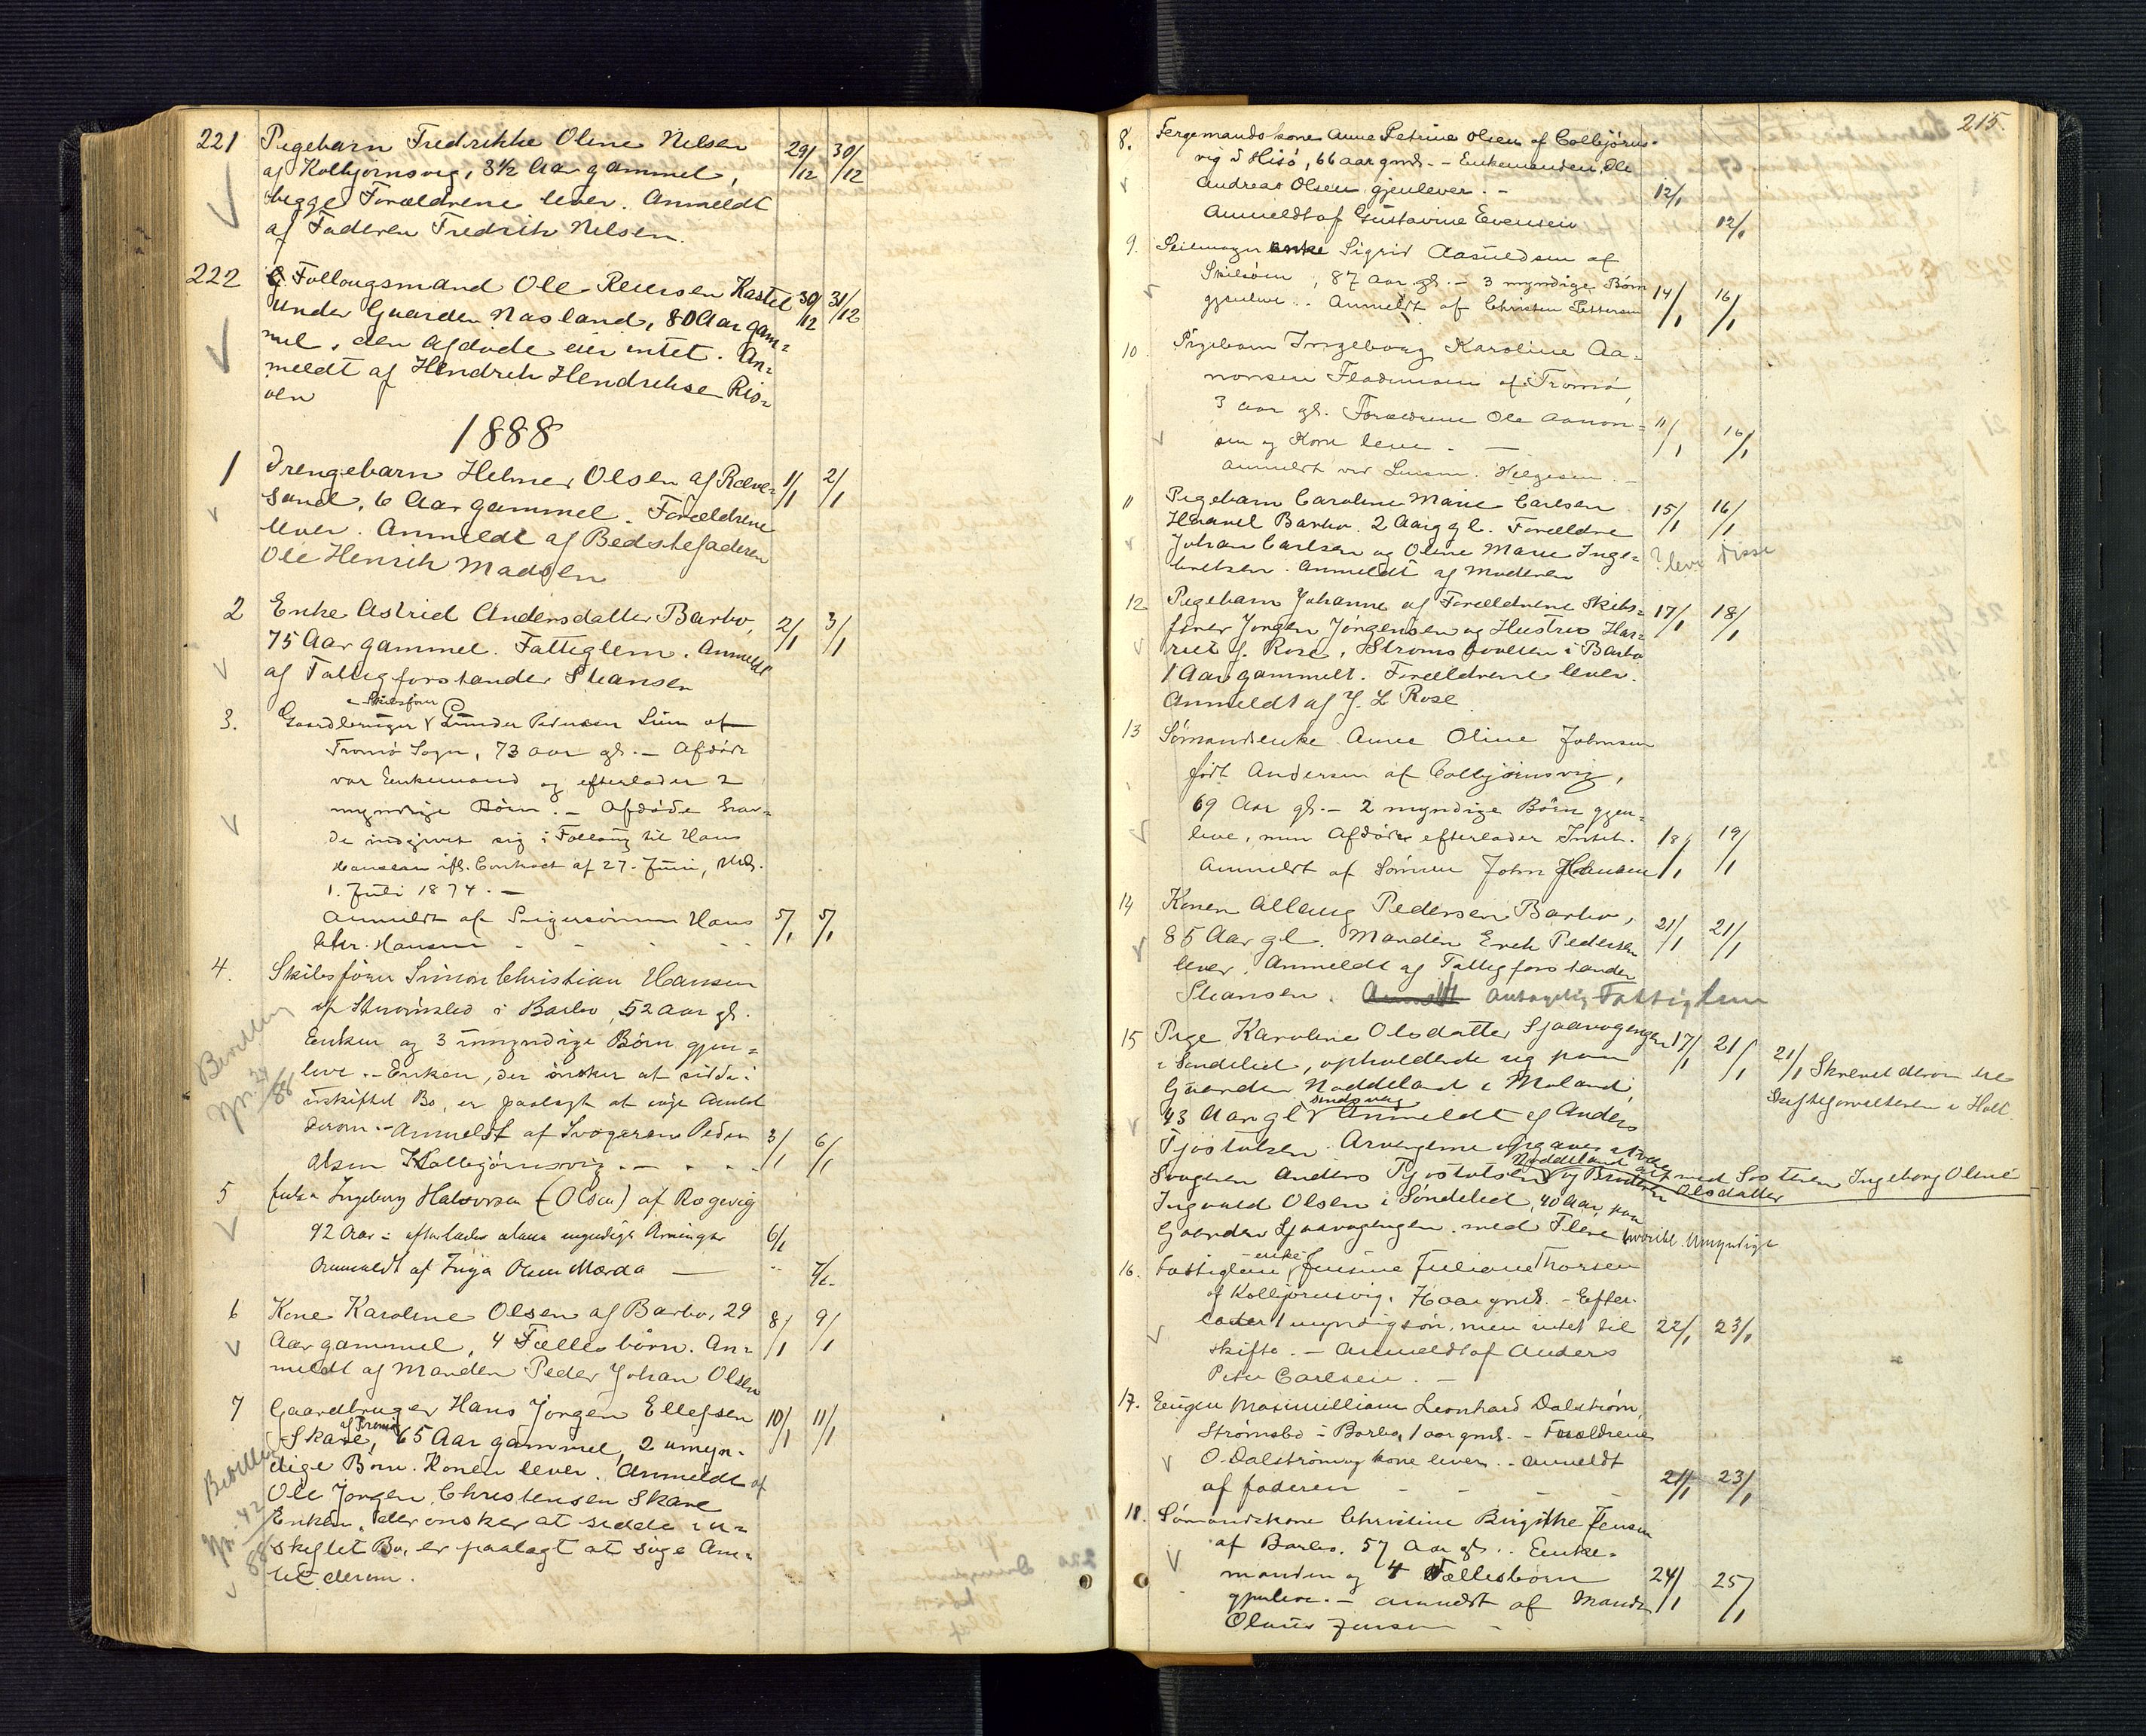 221 Pigebarn Fredrikke Oline Nelsen 29/12 30/12
af Kolbjørnsvig, 3½ Aar gammel,
begge Forældrene lever. Anmeldt
af Faderen Fredrik Nelsen.
222 Føllaugsmand Ole Reiersen Kastel 30/12 31/12
under Gaarden Næsland, 80 Aar gam=
mel, den Afdøde eier intet. An=
meldt af Hendrik Hendriksen Ris=
øen
1888
1 Drengebarn Helmer Olsen af Ræve= 1/1 2/1
sand, 6 Aar gammel. Forældrene
lever. Anmeldt af Bedstefaderen
Ole Henrik Madsen
2 Enke Astrid Andersdatter Barbo, 2/1 3/1
75 Aar gammel. Fattiglem. Anmeldt
af Fattigforstander Stiansen
Skibsfører
3. Gaardbruger & Gunder Pedersen af
Tromø Sogn, 73 aar gl. – Afdøde
var Enkemand og efterlader 2
myndige Børn. – Afdøde hav=
de indgivet sig i Follaug til Hans
Hansen ifl. Contract af 27. Juni,
1. Juli 1874. –
Anmeldt af Svigersønnen Hans 5/1 5/1
Chr. Hansen
4. Skibsfører Simon Christian Hansen
af Strømsbo i Barbo, 52 aar gl.
Enken og 3 umyndige Børn gjen=
leve. – Enken, der ønsker at sidde i
uskiftet Bo, er paalagt at søge Anmeld
derom. – Anmeldt af Svogeren Peder 3/1 6/1
Olsen Kolbjørnsvig. –
Bevilling
Nr. 21/88
5 Enke Ingeborg Halvorsen (Olsen) af Rægevig
92 Aar – efterlader alene myndige Arvinger 6/1
Anmeldt af Olsen Mærdø 7/1
6 Kone Karoline Olsen af Barbo, 29 8/1 9/1
Aar gammel, 4 Fællesbørn. An=
meldt af Manden Peder Johan Olsen
7 Gaardbruger Hans Jørgen Ellefsen 10/1 11/1
af Tromø
Skare, 65 Aar gammel, 2 umyn=
dige Børn. Konen lever. Anmeldt af
Ole Jørgen Christensen Skare
Enken, der ønsker at sidde i u=
skiftet Bo, er paalagt at søge
derom.
Bevilling
Nr. 42/88
215
8. Fergemandskone Anne Petrine Olsen af Colbjørns=
vig i Hisø, 66 aar gml. – Enkemanden Ole
Andreas Olsen gjenlever. – 12/1
Anmeldt af Gustavine Evensen 12/1
9. Seilmagerenke Sigrid Aasuldsen af
Skilsøen, 87 Aar gl. – 3 myndige Børn 14/1 16/1
gjenleve. – Anmeldt af Christen Pettersen
10 Pigebarn Ingeborg Karoline Aa=
nonsen Fladmoen af Tromø,
3 aar gl. Forældrene Ole Aanon= 11/1 16/1
sen og Kone leve. –
Anmeldt ved Lensm. Helgesen. –
11 Pigebarn Caroline Marie Carlsen 15/1 16/1
Barbo. 2 Aar gl. Forældre
Johan Carlsen og Oline Marie Inge= ? leve disse
bretsen. Anmeldt af Moderen
12 Pigebarn Johanne af Forældrene Skibs= 17/1 18/1
fører Jørgen Jørgensen og Hustru Har=
riet f. Rose, Strømsboveien i Barbo
1 Aar gammelt. Forældrene lever.
Anmeldt af J. L Rose
13 Sømandsenke Anne Oline Johnsen
født Andersen af Colbjørnsvig,
69 Aar gl. – 2 myndige Børn gjen=
leve, men Afdøde efterlader Intet. 18/1 19/1
Anmeldt af Sønnen John Johnsen
14 Konen Allaug Pedersen Barbo, 21/1 21/1
85 Aar gl. Manden Erik Pedersen
lever. Anmeldt af Fattigforstander
Stiansen. antagelig Fattiglem
15 Pige Karoline Olsdatter Sjaavaagengen 17/1 21/1 21/1 Skrevet derom til
i Søndeled, opholdende sig paa Skifteforvalteren i Holt.
Gaarden Noddeland i Moland,
sindssvag
43 Aar gl. Anmeldt af Anders
Tjøstolsen. Arvingerne opgaves at være
Svogeren Anders Tjøstolsen Noddeland gift med Søsteren Ingeborg Oline Olsdatter og Broderen
Ingvald Olsen i Søndeled, 40 Aar, paa
Gaarden Sjaavaagengen. med Flere hvoribl. Umyndige
enke
16. Fattiglem Jensine Juliane Thorsen
af Kolbjørnsvig. 74 aar gml. – Efter
lader 1 myndig søn, men intet til 22/1 23/1
Skifte. – Anmeldt af Anders
Peter Carlsen. –
17. Eugen Maximilliam Leonhard Dalstrøm,
Strømsbo i Barbo, 1 aar gml. – Forældrene
O. Dalstrøm og kone lever. – Anmeldt
af faderen 21/1 23/1
18. Sømandskone Christine Birgithe Jensen
af Barbo. 57 Aar gl. Enke=
manden og 4 Fællesbørn 24/1 25/1
gjenleve. – Anmeldt af Manden
Olaus Jensen –